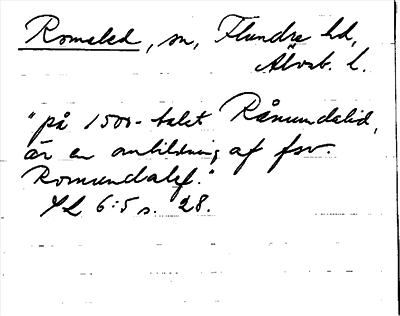 Romelid, sn, Flundre hd,
Älvsb. l.
"på 1500-talet Råmundalid,
är en ombildning af fsv.
Romundalef."
SL 6:5 s. 28.